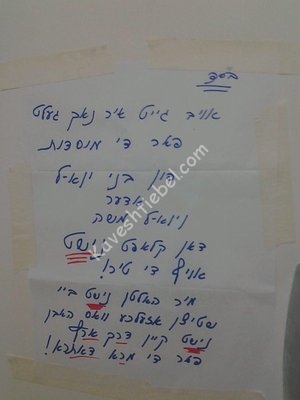 בס"ד
אויב גייט איר נאך געלט
פאר די מוסדות
פון בני יוא-ל
אדער
ויוא-ל משה
דאן קלאפט נישט
אויף די טיר!
מיר האלטן נישט ביי
שטיצן אזעלכע וואס האבן
נישט קיין דרך ארץ
פאר די מרא דאתרא!
kaveshtiebel.com